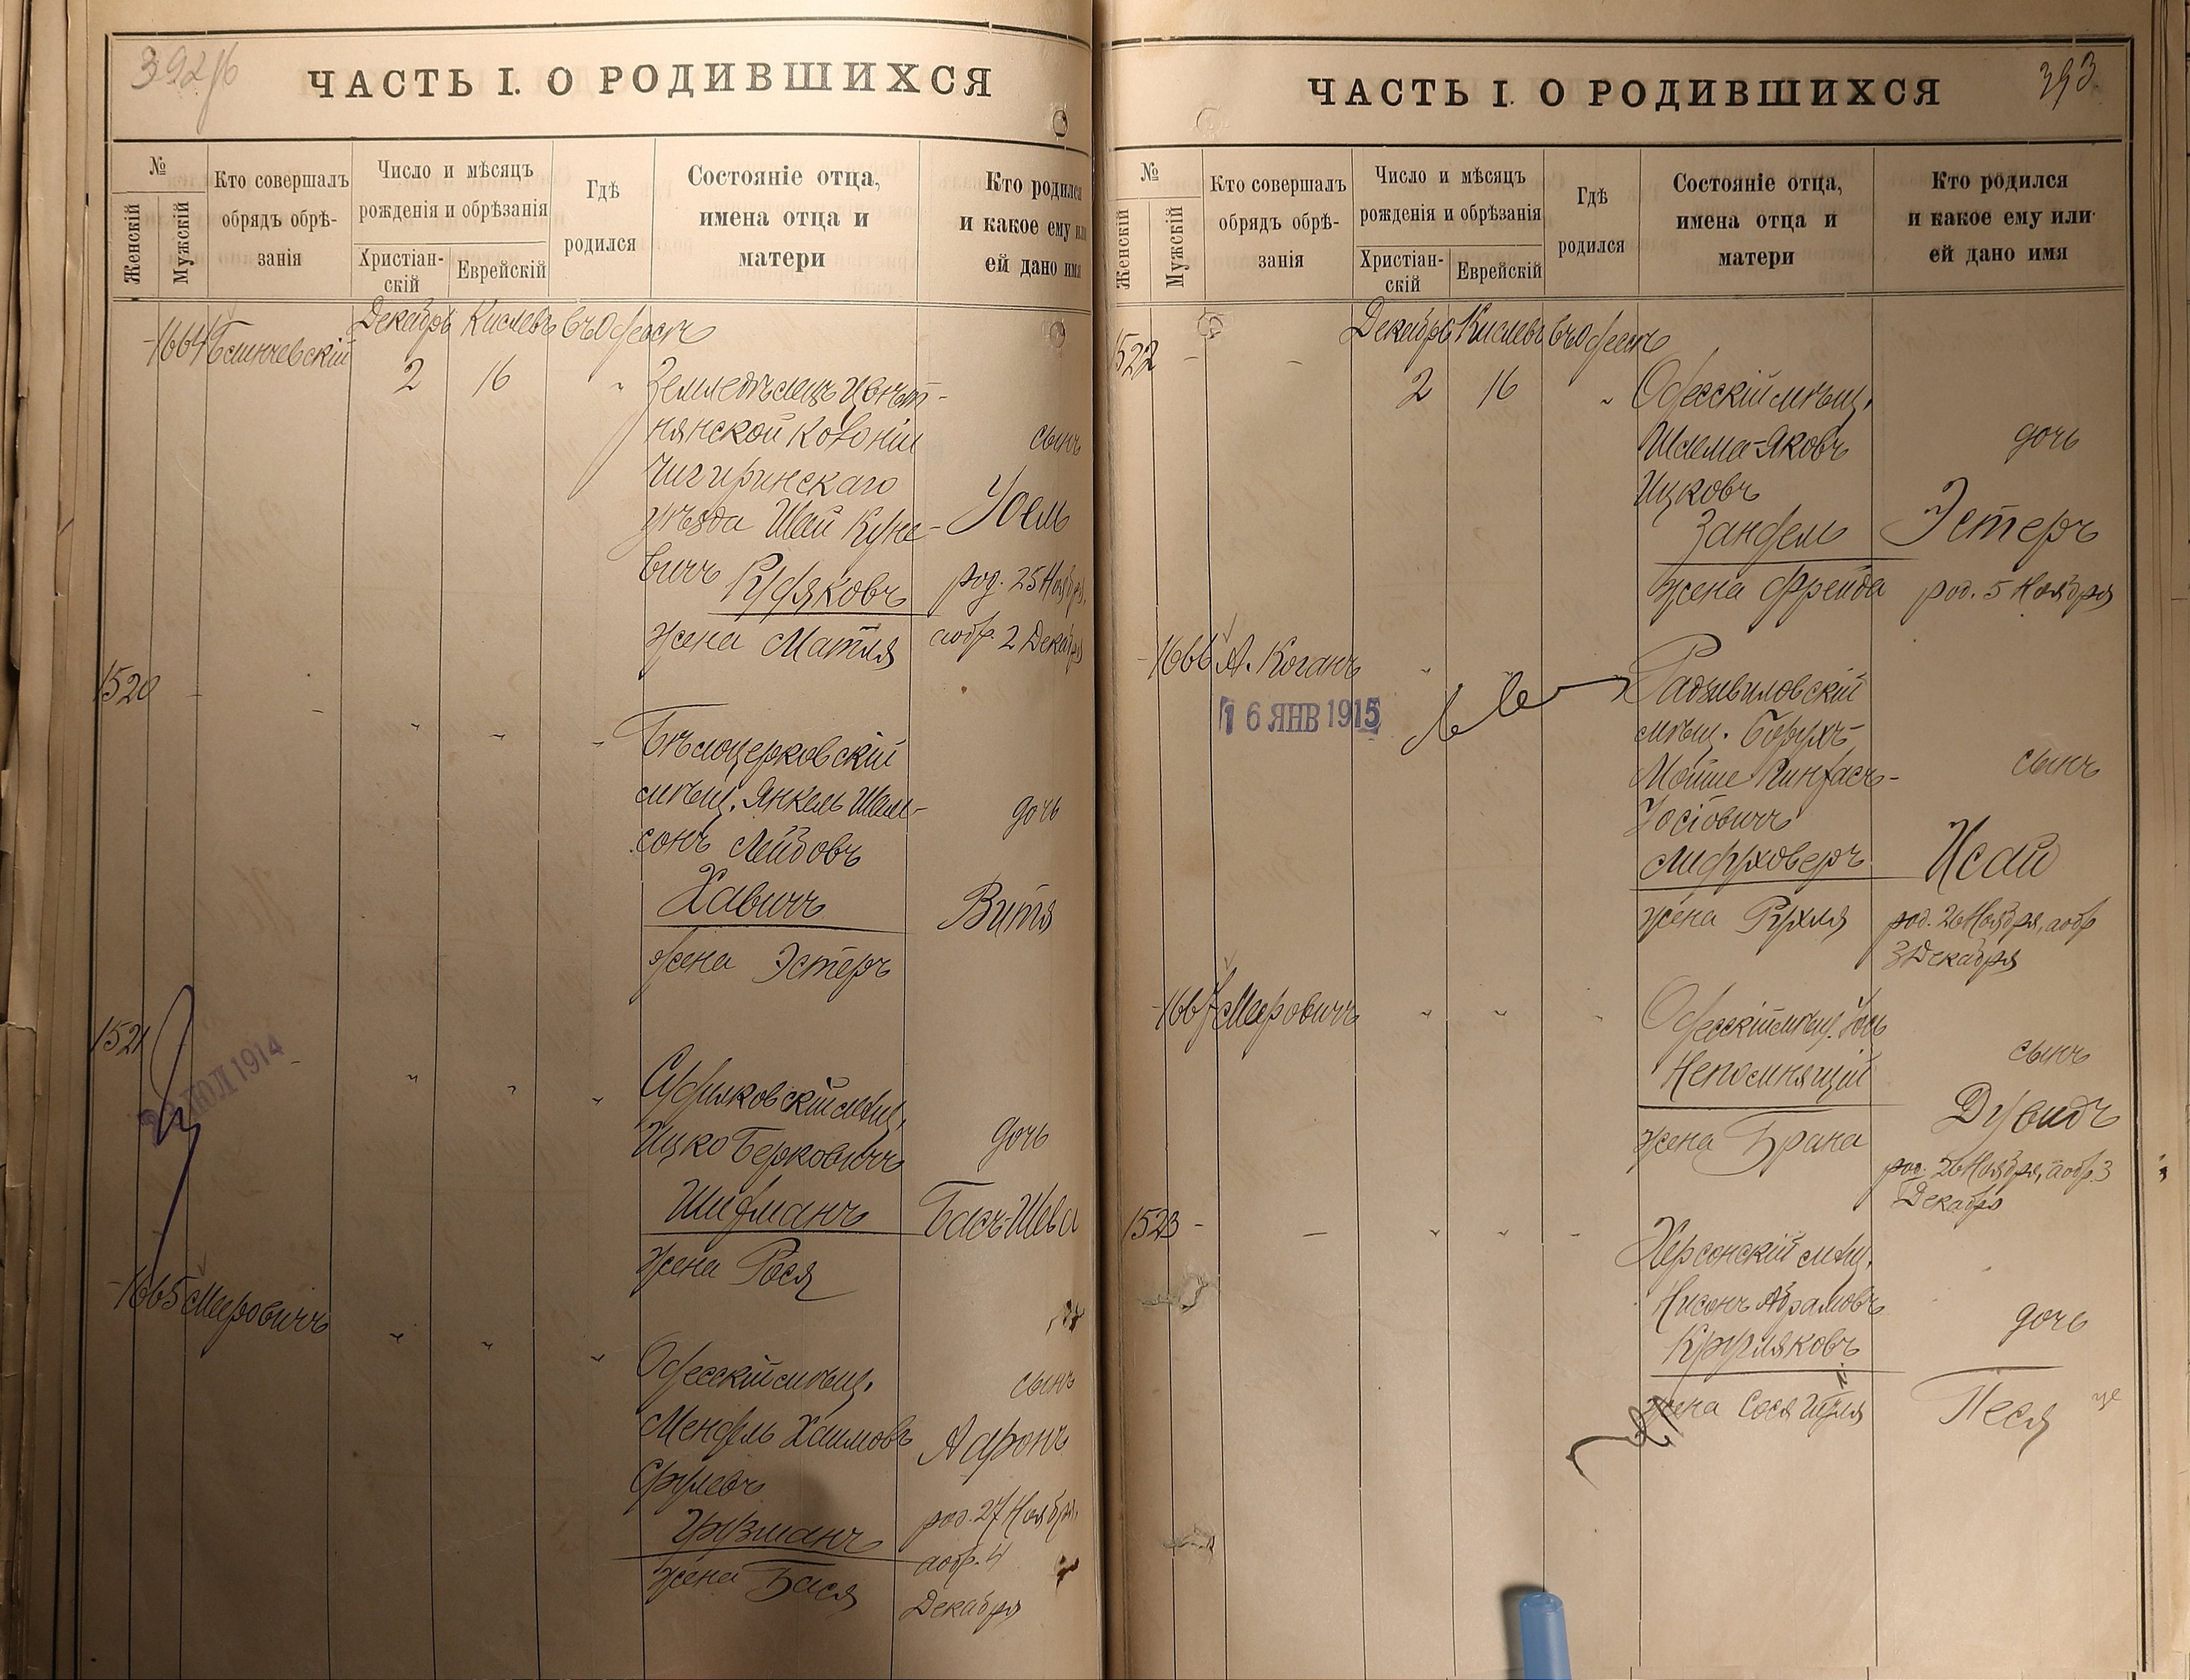 392 об
ЧАСТЬ I. О РОДИВШИХСЯ
№
Женскій
Мужскій
Кто совершалъ
обрядъ обрѣ-
занія
Число и мѣсяцъ
рожденія и обрѣзанія
Христіан-
скій
Еврейскій
Гдѣ
родился
Состояніе отца,
имена отца и
матери
Кто родился
и какое ему или
ей дано имя
Декабрь Кислевъ въ Одессѣ
1664
2 16 "
Земледѣлецъ
нянской Колоніи
Чигиринскаго
уѣзда Шая
Рудяковъ
жена Матля
сынъ
Іоель
род. 25 Ноября,
а обр. 2 Декабря
1520 - - " " "
Бѣлоцерковскій
мѣщ. Янкель Шам-
сонъ Лейбовъ
Хавичъ
жена Эстеръ
дочь
Витя
1521 - " " "
22 ИЮЛ 1914
Судилковскій мѣщ.
Ицко Берковичъ
Шифманъ
жена Рося
дочь
Бася-Шева
- 1665 Меировичъ " " "
Одесскій мѣщ.
Мендель Хаимовъ
Срулевъ
Гузманъ
жена Бася
сынъ
Ааронъ
род. 27 Ноября,
а обр. 4
Декабря
393
ЧАСТЬ I. О РОДИВШИХСЯ
№
Женскій
Мужскій
Кто совершалъ
обрядъ обрѣ-
занія
Число и мѣсяцъ
рожденія и обрѣзанія
Христіан-
скій
Еврейскій
Гдѣ
родился
Состояніе отца,
имена отца и
матери
Кто родился
и какое ему или
ей дано имя
Декабрь Кислевъ въ Одессѣ
1522 - -
2 16 "
Одесскій мѣщ.
Шлема-Яковъ
Ицковъ
Зандель
жена Фрейда
дочь
Эстеръ
род. 5 Ноября
- 1666 А. Коганъ
16 ЯНВ 1915
Радзивиловскій
мѣщ. Борухъ-
Мойше Пинхасъ-
Іосіовичъ
жена Рухля
сынъ
Исай
род. 26 Ноября, а обр
3 Декабря
- 1667 Меировичъ " " "
Одесскій мѣщ.
Непомнящій
жена Брана
сынъ
Дувидъ
род. 26 Ноября, а обр. 3
Декабря
1523 - - " " "
Херсонскій мѣщ.
Нисонъ Абрамовъ
Кругляковъ
жена Сося
дочь
Песя